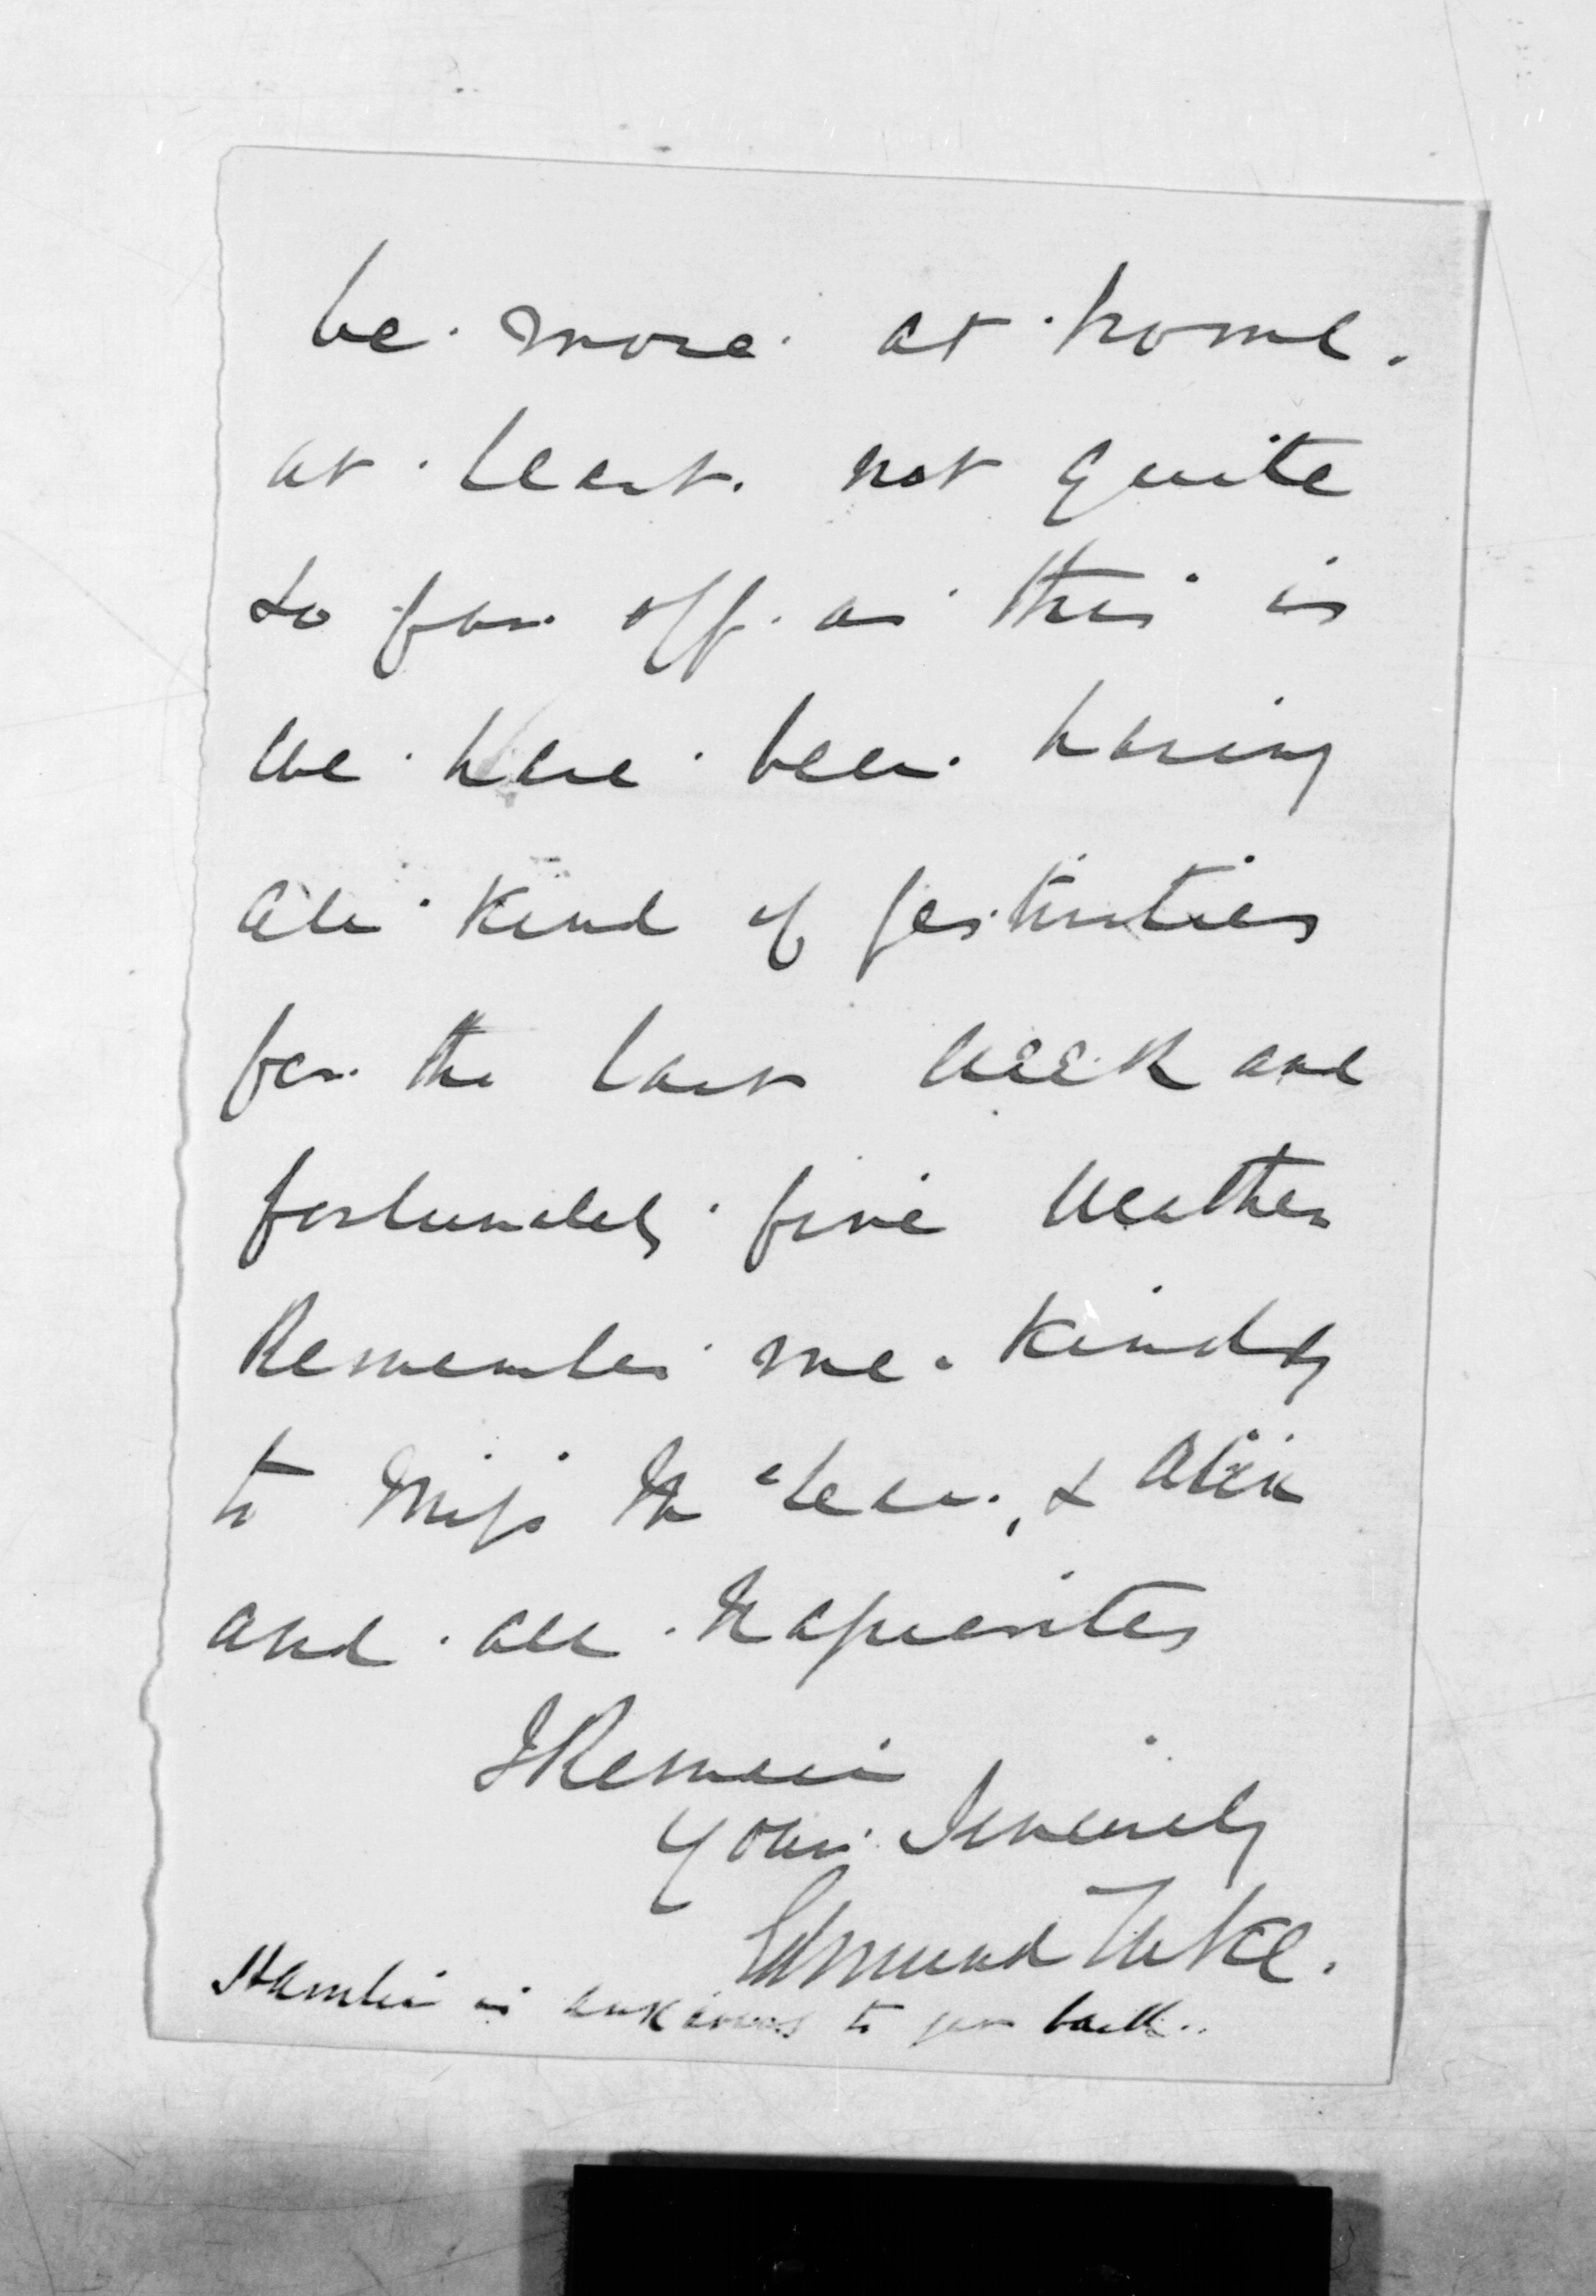 be more at home.
at least. not quite
so far off. as this is
we have been having
all kind of festivities
for the last week and
fortunately fine weather
Remember me. kindly
to Miss McLean, & Alick
and all Napierites
I Remain
Yours Sincerely
Edmund Tuke.
Hamlin is anxious to get back..